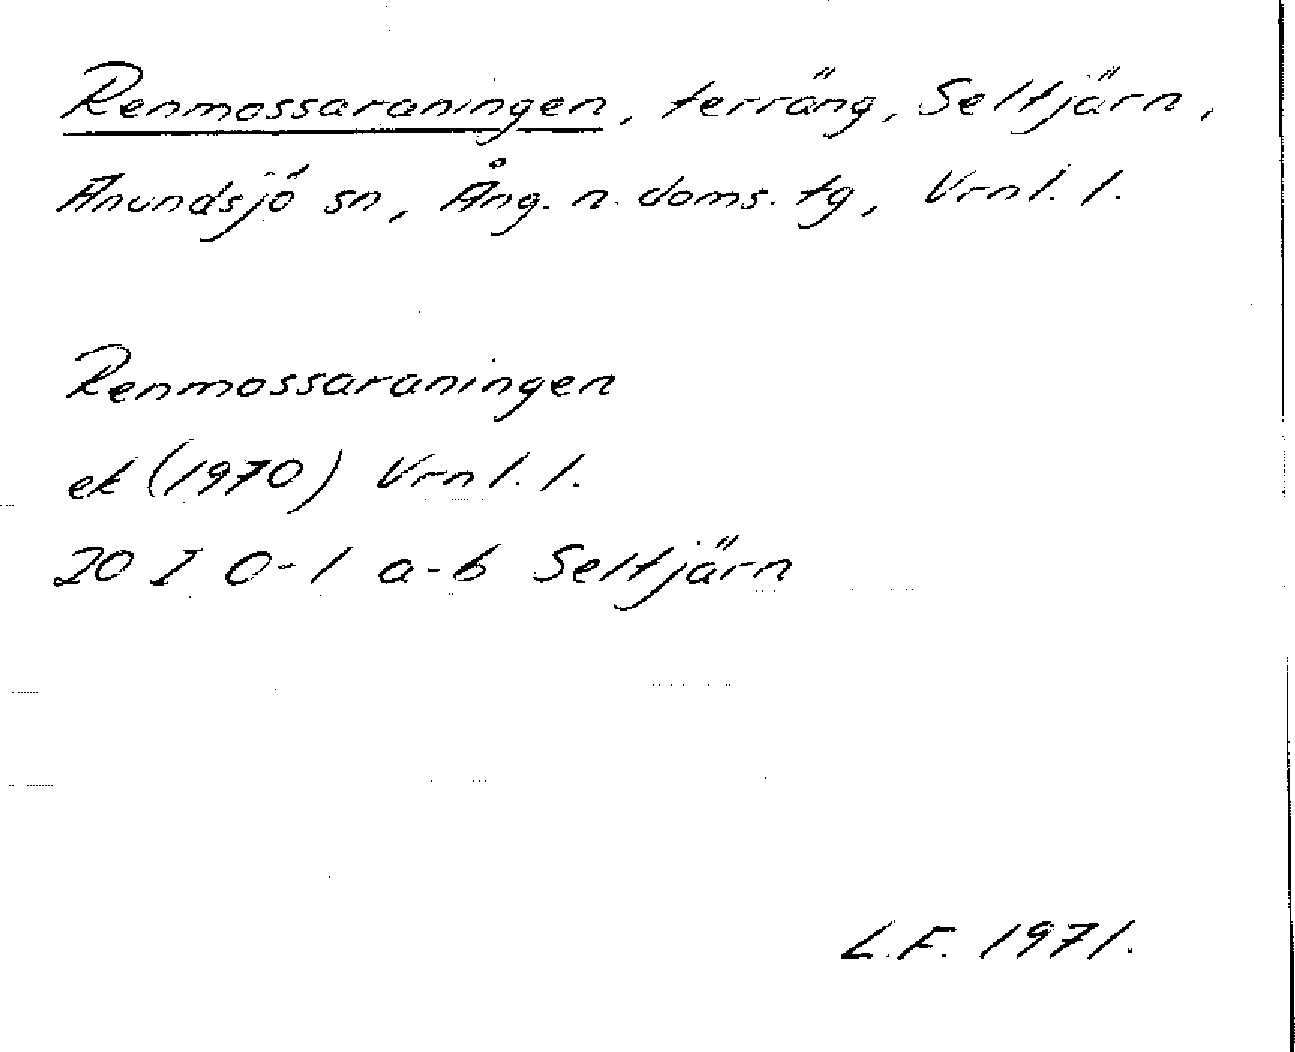 Renmossaraningen, terräng, Seltjärn,
Anundsjö sn, Ång. n. doms. tg, Vrnl. l.
Renmossaraningen
ek (1970) Vrnl. l.
20 I 0-1 a-b Seltjärn
L.F. 1971.